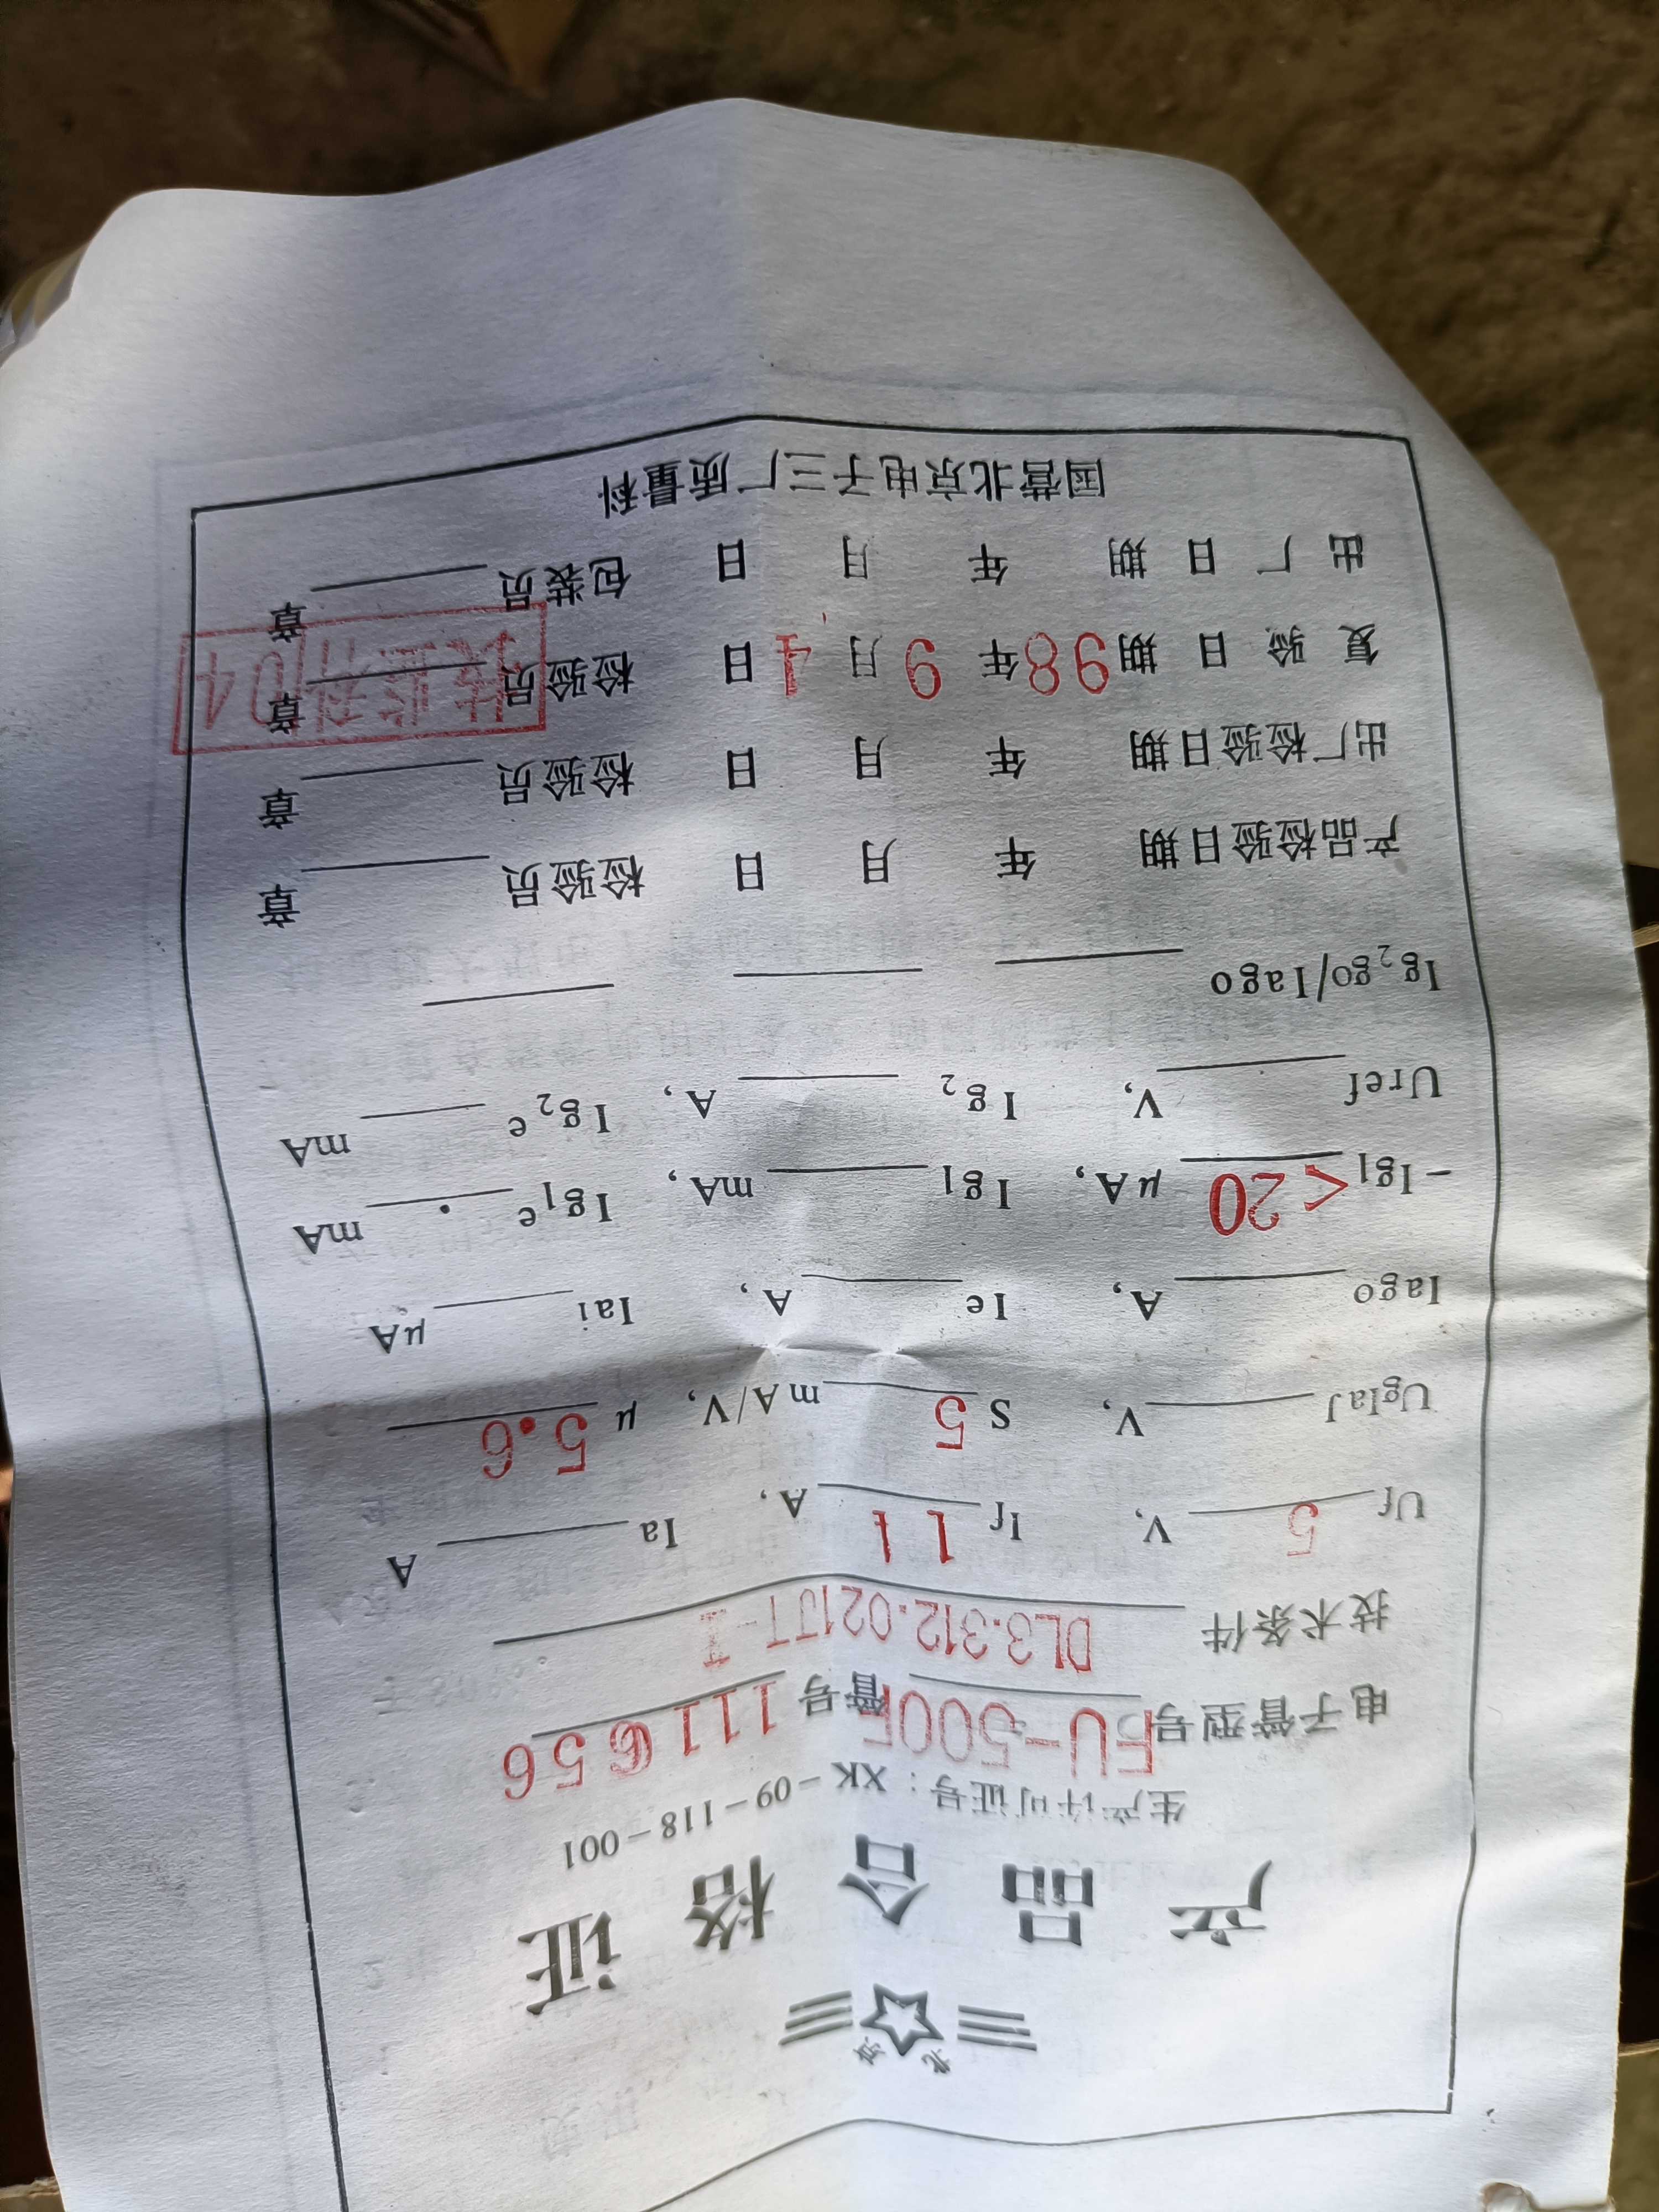 北 海
产品合格证
生产许可证号：XK－09－118－001
电子管型号FU-500F 管号111656
技术条件 DL3.312.021JT-I
Uf 5 V, If 11 A, Ia A
UglaJ V, S 5 mA/V, μ 5.6
Iago A, Ie A, Iai μA
-Ig1 <20 μA, Ig1 mA, Ig1e mA
Uref V, Ig2 A, Ig2e mA
Ig2go/Iago
产品检验日期 年 月 日 检验员 章
出厂检验日期 年 月 日 检验员 章
复验日期98年9月4日 检验员 章
检验科04
出厂日期 年 月 日 包装员 章
国营北京电子三厂质量科